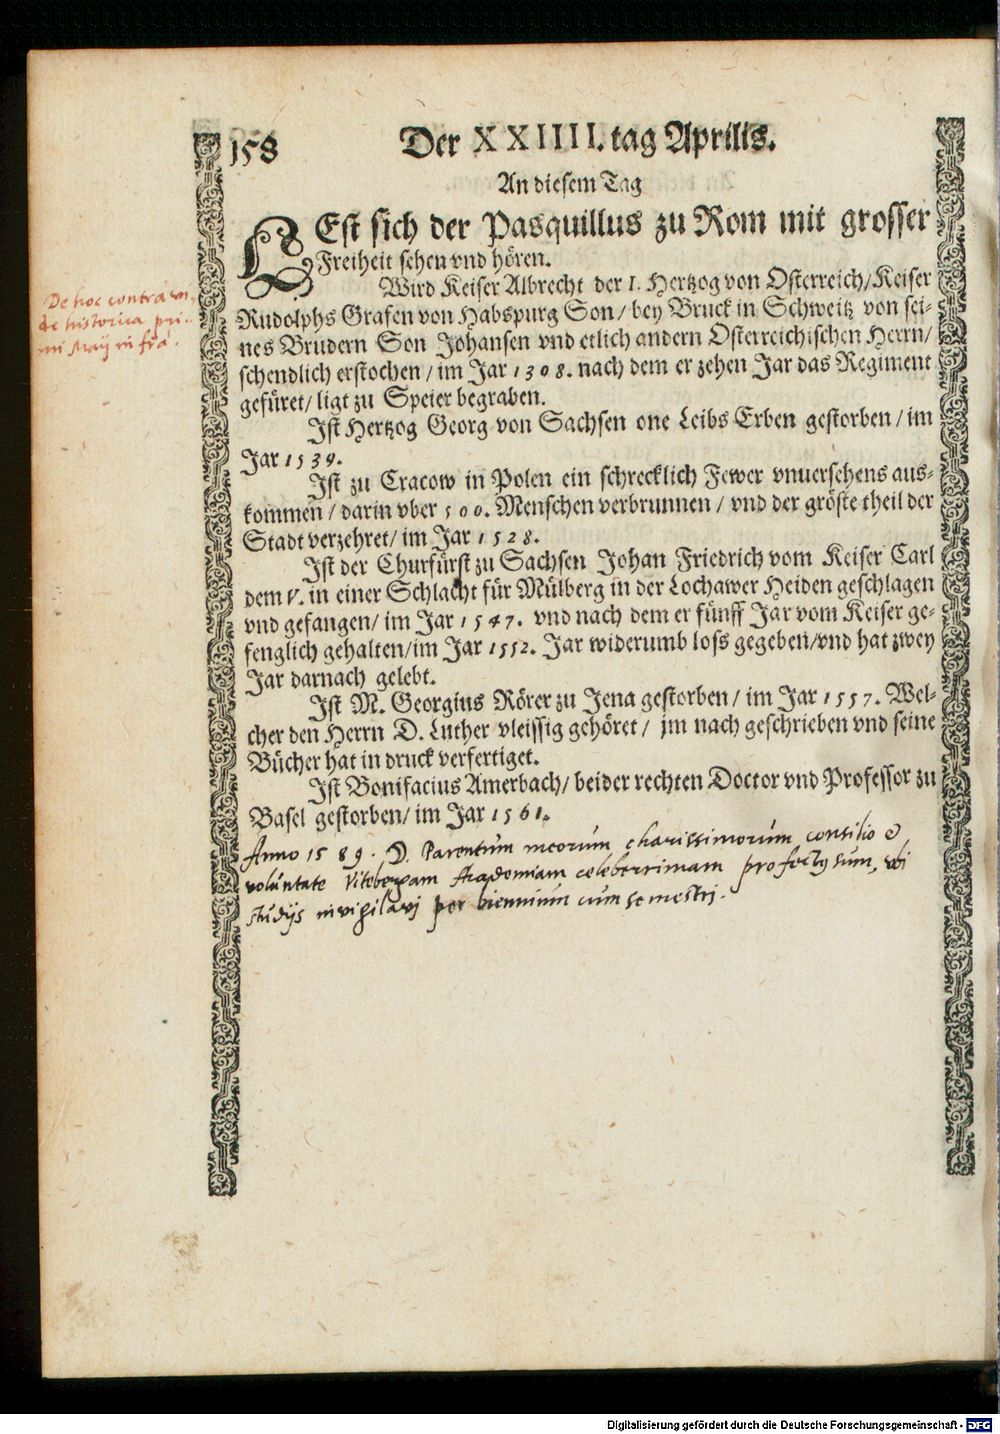 158
Der XXIIII. tag Aprilis.
An diesem Tag
LEst sich der Pasquillus zu Rom mit grosser
Freiheit sehen vnd hören.
Wird Keiser Albrecht der I. Hertzog von Osterreich/Keiser
Rudolphs Grafen von Habspurg Son/ bey Bruck in Schweitz von sei-
nes Brudern Son Johansen vnd etlich andern Osterreichischen Herrn/
schendlich erstochen/ im Jar 1308. nach dem er zehen Jar das Regiment
gefüret/ ligt zu Speier begraben.
Ist Hertzog Georg von Sachsen one Leibs Erben gestorben/ im
Jar 1539.
Ist zu Cracow in Polen ein schrecklich Fewer vnuersehens aus-
kommen/ darin vber 500. Menschen verbrunnen/ vnd der gröste theil der
Stadt verzehret/ im Jar 1528.
Ist der Churfürst zu Sachsen Johan Friedrich vom Keiser Carl
dem V. in einer Schlacht für Mülberg in der Lochawer Heiden geschlagen
vnd gefangen/ im Jar 1547. vnd nach dem er fünff Jar vom Keiser ge-
fenglich gehalten/im Jar 1552. Jar widerumb loss gegeben/vnd hat zwey
Jar darnach gelebt.
Ist M. Georgius Rörer zu Jena gestorben/ im Jar 1557. Wel-
cher den Herrn D. Luther vleissig gehöret/ jm nach geschrieben vnd seine
Bücher hat in druck verfertiget.
Ist Bonifacius Amerbach/ beider rechten Doctor vnd Professor zu
Basel gestorben/ im Jar 1561.
Anno 1589. D. Parentum meorum charissimorum consilio &
voluntate Vitebergam Academiam celeberrimam profectus sum, vbi
studijs invigilavi per biennium cum semestri.
De hoc contrà
de historica pri-
mi Maij infrà.
Digitalisierung gefördert durch die Deutsche Forschungsgemeinschaft - DFG